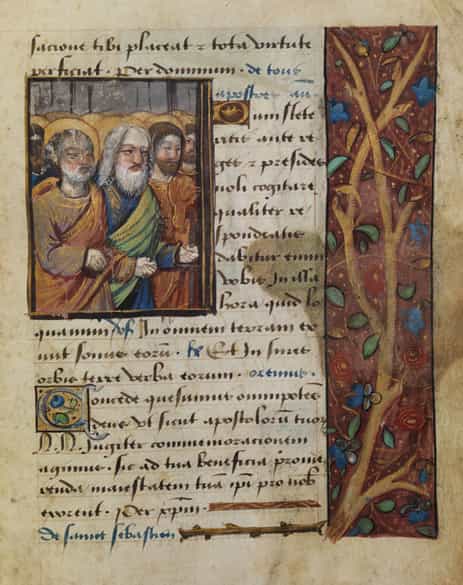 facione tibi placeat ⁊ tota virtute
perficiat. Per dominum. de tous
apostres an.
Dum stete
ritis ante re
ges ⁊ presides
noli cogitare
qualiter re
spondeatis
dabitur enim
vobis In illa
hora quid lo
quamini vs. In omnem terram ex
iuit sonus eorū. Et In fines
orbis terre verba eorum. oremus.
Concede quesumus omnipotens
deus vt sicut apostolorū tuor
N.N. Iugiter commemoracionem
agimus. sic ad tua beneficia promer
renda, maiestatem tua ipi pro nob
exorent. Per xpm̄.
de sainct sebastien